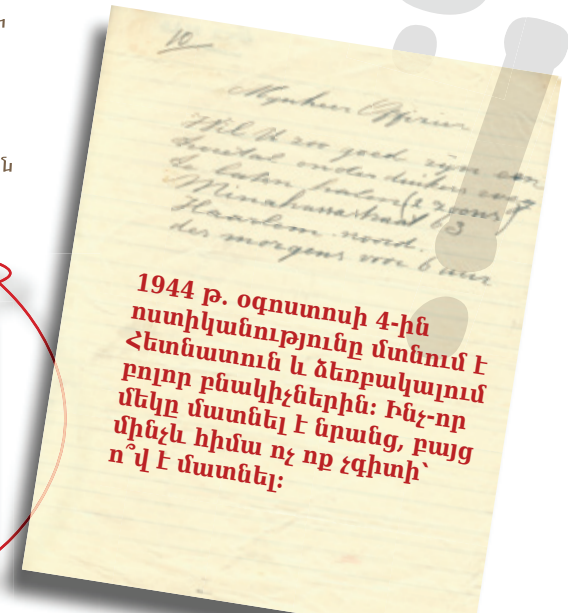 10
Mynheer Offisier
Wil U zoo goed zijn een
de laten halen (2 zoons)
Minahassastraat 63
Haarlem. noord.
des morgens voor 6 uur
1944 թ. օգոստոսի 4-ին
ոստիկանությունը մտնում է
Հետնատուն և ձեռբակալում
բոլոր բնակիչներին: Ինչ-որ
մեկը մատնել է նրանց, բայց
մինչև հիմա ոչ ոք չգիտի՝
ո՞վ է մատնել: